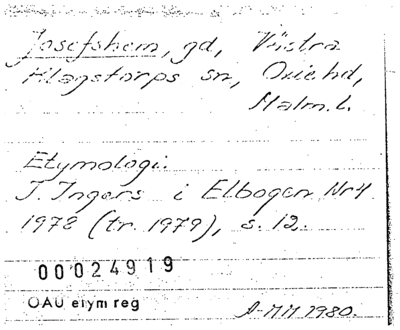 Josefshem, gd, Västra
Klagstorps sn, Oxie hd,
Malm. l.
Etymologi:
J. Ingers i Elbogen Nr 4
1978 (tr. 1979), s. 12.
00024919
OAU etym reg
A-MM 1980.